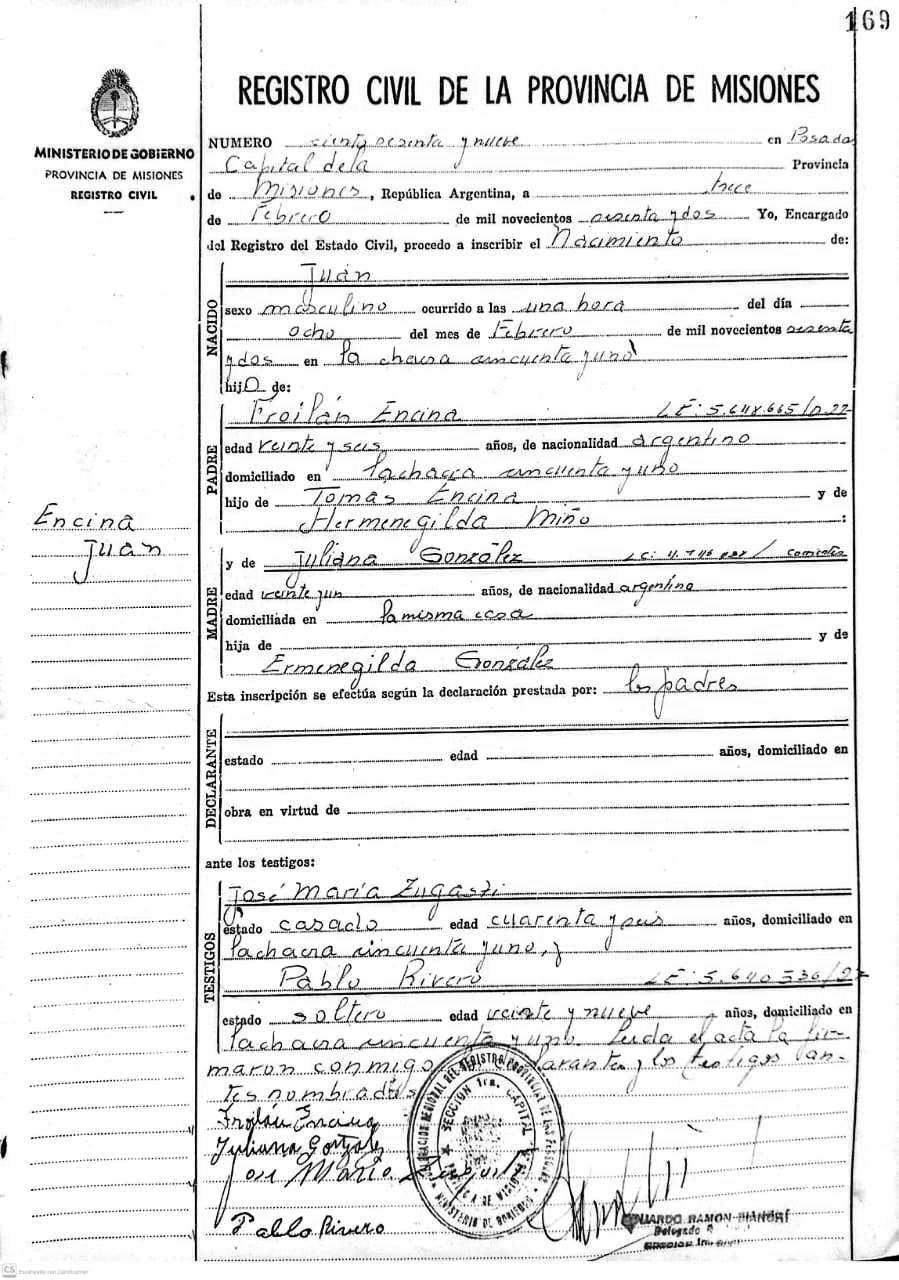 169
REGISTRO CIVIL DE LA PROVINCIA DE MISIONES
MINISTERIO DE GOBIERNO
PROVINCIA DE MISIONES
REGISTRO CIVIL
NUMERO ciento sesenta y nueve en Posadas
Capital de la Provincia
de Misiones, República Argentina, a trece
de Febrero de mil novecientos sesenta y dos Yo, Encargado
del Registro del Estado Civil, procedo a inscribir el Nacimiento de:
NACIDO
Juan
sexo masculino ocurrido a las una hora del día
ocho del mes de Febrero de mil novecientos sesenta
y dos en la chacra cincuenta y uno
hijo de:
PADRE
Froilán Encina LE: 5.648.665/D.22
edad veinte y seis años, de nacionalidad argentino
domiciliado en la chacra cincuenta y uno
hijo de Tomás Encina y de
Hermenegilda Miño :
Encina
Juan
MADRE
y de Juliana González LC:
edad veinte y un años, de nacionalidad argentina
domiciliada en la misma casa
hija de y de
Ermenegilda González
Esta inscripción se efectúa según la declaración prestada por: los padres
DECLARANTE
estado edad años, domiciliado en
obra en virtud de
ante los testigos:
TESTIGOS
José María Zugasti
estado casado edad cuarenta y seis años, domiciliado en
la chacra cincuenta y uno, y
Pablo Rivero LE: 5.640.536/22
estado soltero edad veinte y nueve años, domiciliado en
la chacra cincuenta y uno. Leida el acta la fir-
maron conmigo larantes y los testigos an-
tes nombrados
Froilán Encina
Juliana González
José María Zugasti
Pablo Rivero
SECCIÓN 1ra. CAPITAL
MINISTERIO DE GOBIERNO
EDUARDO RAMON BIANGRÍ
Delegado
CS Escaneado con CamScanner